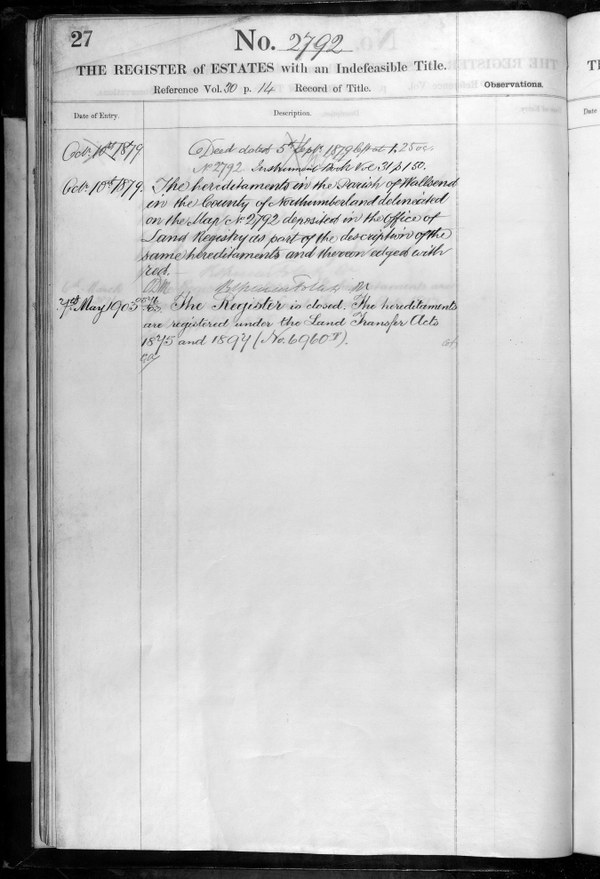 27
No. 2792
THE REGISTER of ESTATES with an Indefeasible Title.
Reference Vol. 30 p. 14 Record of Title.
Observations.
Date of Entry.
Description.
Octr. 10th 1879
Deed dated 5th Septr. 1879
No 2792 Instrument Book Vol. 31 p 150.
Octr. 10th 1879.
The hereditaments in the Parish of Wallsend
in the County of Northumberland delineated
on the Map No. 2792 deposited in the Office of
Land Registry as part of the description of the
same hereditaments and thereon edged with
red.
May 1903
The Register is closed. The hereditaments
are registered under the Land Transfer Acts
1875 and 1897 (No. 6960).